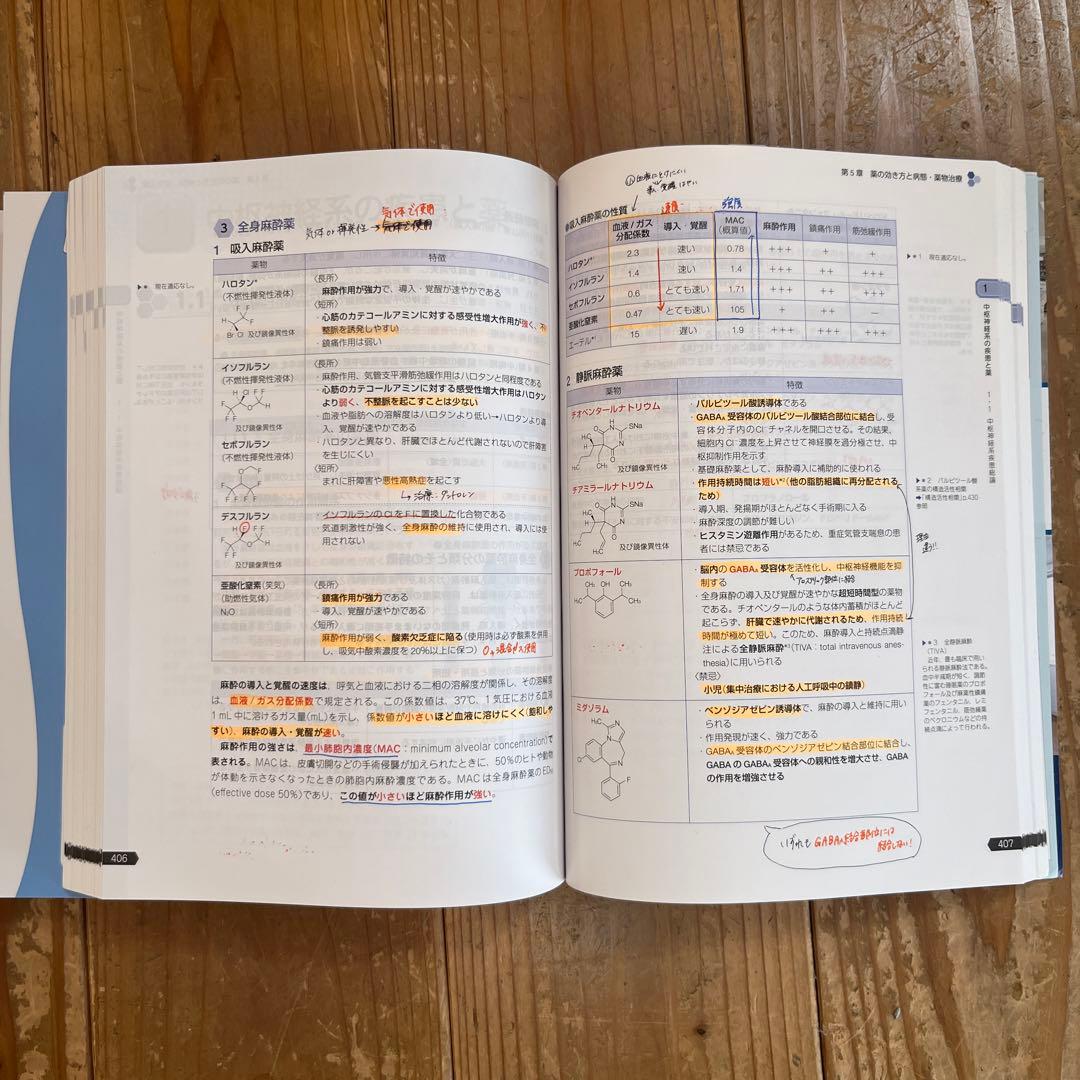 3 全身麻酔薬
気体で使用
気体 or 揮発性 →
1 吸入麻酔薬
薬物
特徴
▶*1 現在適応なし。
ハロタン*1
(不燃性揮発性液体)
及び鏡像異性体
〈長所〉
麻酔作用が強力で、導入・覚醒が速やかである
〈短所〉
・心筋のカテコールアミンに対する感受性増大作用が強く、不
整脈を誘発しやすい
・鎮痛作用は弱い
イソフルラン
(不燃性揮発性液体)
及び鏡像異性体
〈長所〉
・麻酔作用、気管支平滑筋弛緩作用はハロタンと同程度である
・心筋のカテコールアミンに対する感受性増大作用はハロタン
より弱く、不整脈を起こすことは少ない
・血液や脂肪への溶解度はハロタンより低い→ハロタンより導
入、覚醒が速やかである
・ハロタンと異なり、肝臓でほとんど代謝されないので肝障害
を生じにくい
〈短所〉
まれに肝障害や悪性高熱症を起こす
↳ 治療:ダントロレン
セボフルラン
(不燃性揮発性液体)
デスフルラン
(不燃性揮発性液体)
及び鏡像異性体
・イソフルランのClをFに置換した化合物である
・気道刺激性が強く、全身麻酔の維持に使用され、導入には使
用されない
亜酸化窒素(笑気)
(助燃性気体)
N₂O
〈長所〉
・鎮痛作用が強力である
・導入、覚醒が速やかである
〈短所〉
麻酔作用が弱く、酸素欠乏症に陥る(使用時は必ず酸素を併用
し、吸気中酸素濃度を20%以上に保つ) O₂混合ガス使用
麻酔の導入と覚醒の速度は、呼気と血液における二相の溶解度が関係し、その溶解度
は、血液/ガス分配係数で規定される。この係数値は、37℃、1気圧における血液
1mL中に溶けるガス量(mL)を示し、係数値が小さいほど血液に溶けにくく(飽和しや
すい)、麻酔の導入・覚醒が速い。
麻酔作用の強さは、最小肺胞内濃度(MAC:minimum alveolar concentration)で
表される。MACは、皮膚切開などの手術侵襲が加えられたときに、50%のヒトや動物
が体動を示さなくなったときの肺胞内麻酔濃度である。MACは全身麻酔薬のED₅₀
(effective dose 50%)であり、この値が小さいほど麻酔作用が強い。
406
第5章 薬の効き方と病態・薬物治療
小 血液にとけにくい
導入 覚醒 はやい
●吸入麻酔薬の性質
速度
強度
血液/ガス分配係数 導入・覚醒 MAC(概算値) 麻酔作用 鎮痛作用 筋弛緩作用
ハロタン*1 2.3 速い 0.78 +++ + +
イソフルラン 1.4 速い 1.4 +++ ++ +++
セボフルラン 0.6 とても速い 1.71 +++ ++ ++
亜酸化窒素 0.47 とても速い 105 + ++ −
エーテル*1 15 遅い 1.9 +++ +++ +++
▶*1 現在適応なし。
1
中枢神経系の疾患と薬
1・1 中枢神経系疾患総論
2 静脈麻酔薬
薬物
特徴
チオペンタールナトリウム
及び鏡像異性体
チアミラールナトリウム
及び鏡像異性体
・バルビツール酸誘導体である
・GABAA受容体のバルビツール酸結合部位に結合し、受
容体分子内のCl⁻チャネルを開口させる。その結果、
細胞内Cl⁻濃度を上昇させて神経膜を過分極させ、中
枢抑制作用を示す
・基礎麻酔薬として、麻酔導入に補助的に使われる
・作用持続時間は短い*2(他の脂肪組織に再分配される
ため)
・導入期、発揚期がほとんどなく手術期に入る
・麻酔深度の調節が難しい
・ヒスタミン遊離作用があるため、重症気管支喘息の患
者には禁忌である
▶*2 バルビツール酸
系薬の構造活性相関
➡「構造活性相関」p.430
参照
理由
違う!!
プロポフォール
・脳内のGABAA受容体を活性化し、中枢神経機能を抑
制する
・全身麻酔の導入及び覚醒が速やかな超短時間型の薬物
である。チオペンタールのような体内蓄積がほとんど
起こらず、肝臓で速やかに代謝されるため、作用持続
時間が極めて短い。このため、麻酔導入と持続点滴静
注による全静脈麻酔*3(TIVA:total intravenous anes-
thesia)に用いられる
〈禁忌〉
小児(集中治療における人工呼吸中の鎮静)
▶*3 全静脈麻酔
(TIVA)
近年、最も臨床で用い
られる静脈麻酔法である。
血中半減期が短く、調節
性に富む静脈薬のプロポ
フォール及び麻薬性鎮痛
薬のフェンタニル、レミ
フェンタニル、筋弛緩薬
のベクロニウムなどの持
続点滴によって行われる。
ミダゾラム
・ベンゾジアゼピン誘導体で、麻酔の導入と維持に用い
られる
・作用発現が速く、強力である
・GABAA受容体のベンゾジアゼピン結合部位に結合し、
GABAのGABAA受容体への親和性を増大させ、GABA
の作用を増強させる
いずれも GABAA結合部位には
結合しない!
407